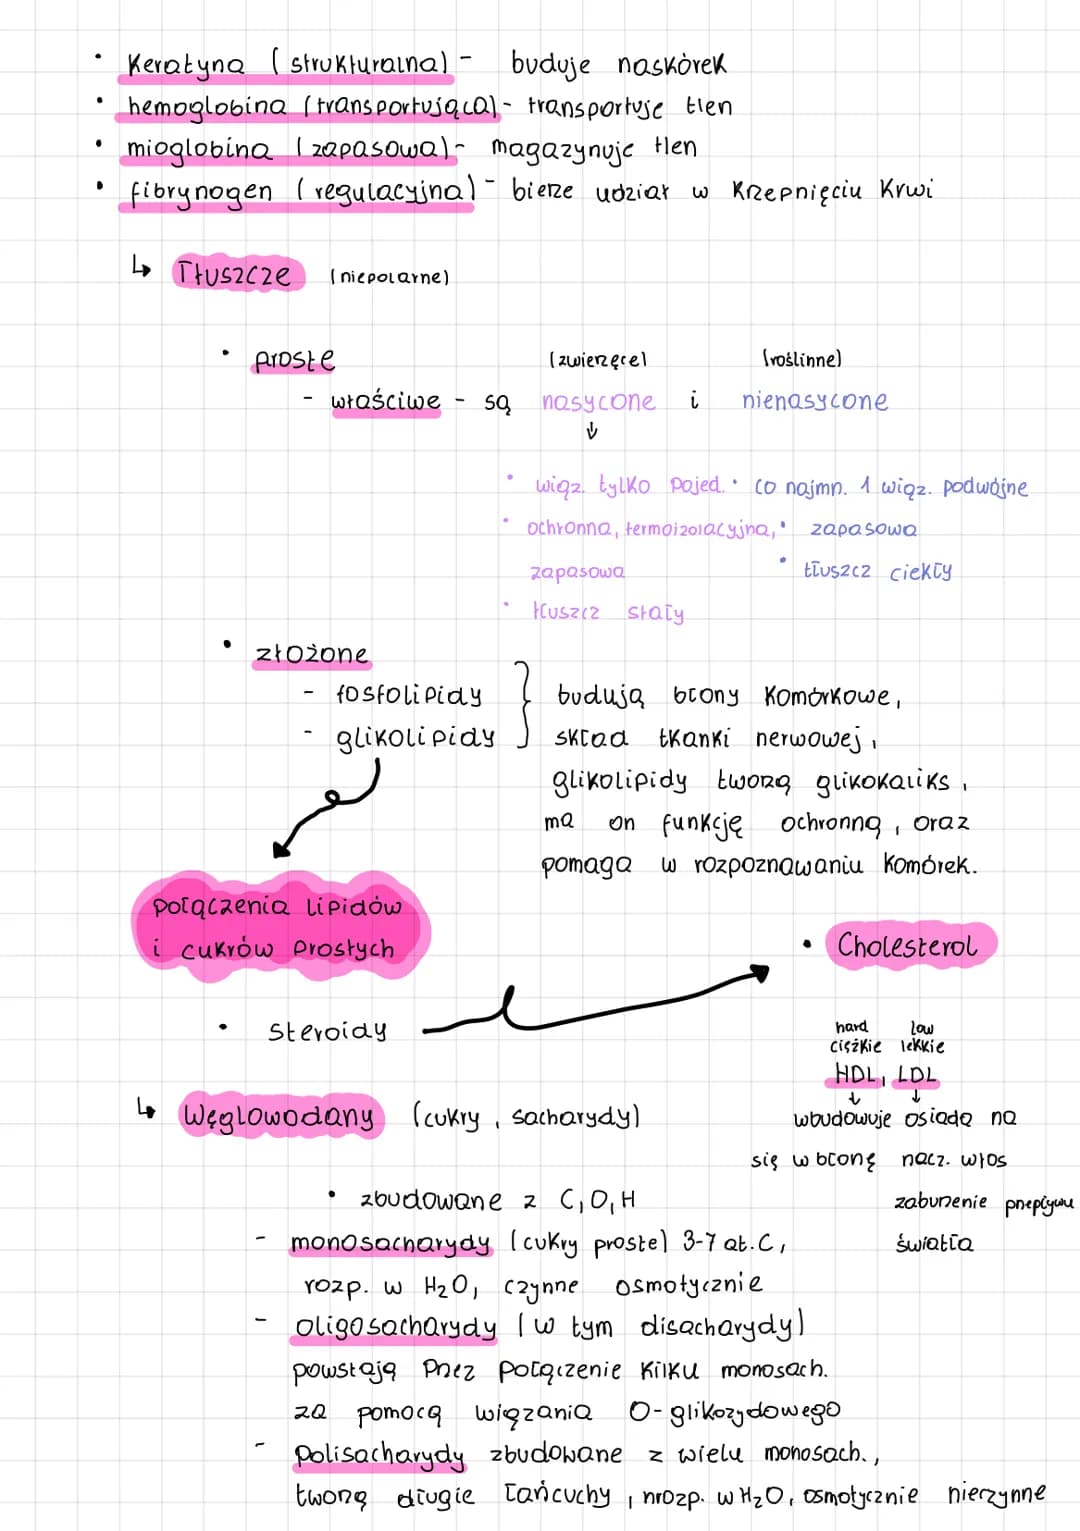 • Keratyna (strukturalna) - buduje naskórek
• hemoglobina (transportująca) - transportuje tlen
• mioglobina (zapasowa) - magazynuje tlen
• fibrynogen (regulacyjna) - bierze udział w krzepnięciu krwi
↳ Tłuszcze (niepolarne)
• proste (zwierzęce) (roślinne)
- właściwe - są nasycone i nienasycone
↓
• wiąz. tylko pojed. • co najmn. 1 wiąz. podwójne
• ochronna, termoizolacyjna, • zapasowa
zapasowa • tłuszcz ciekły
• tłuszcz stały
• złożone
- fosfolipidy } budują błony komórkowe,
- glikolipidy skład tkanki nerwowej,
glikolipidy tworzą glikokaliks,
ma on funkcję ochronną, oraz
pomaga w rozpoznawaniu komórek.
połączenia lipidów
i cukrów prostych
• Cholesterol
• steroidy
hard low
ciężkie lekkie
HDL, LDL
↓ ↓
wbudowuje osiada na
się w błonę nacz. włos
zaburzenie przepływu
światła
↳ Węglowodany (cukry, sacharydy)
• zbudowane z C, O, H
- monosacharydy (cukry proste) 3-7 at. C,
rozp. w H₂O, czynne osmotycznie
- oligosacharydy (w tym disacharydy)
powstają przez połączenie kilku monosach.
za pomocą wiązania O-glikozydowego
- polisacharydy zbudowane z wielu monosach.,
tworzą długie łańcuchy, nrozp. w H₂O, osmotycznie nieczynne